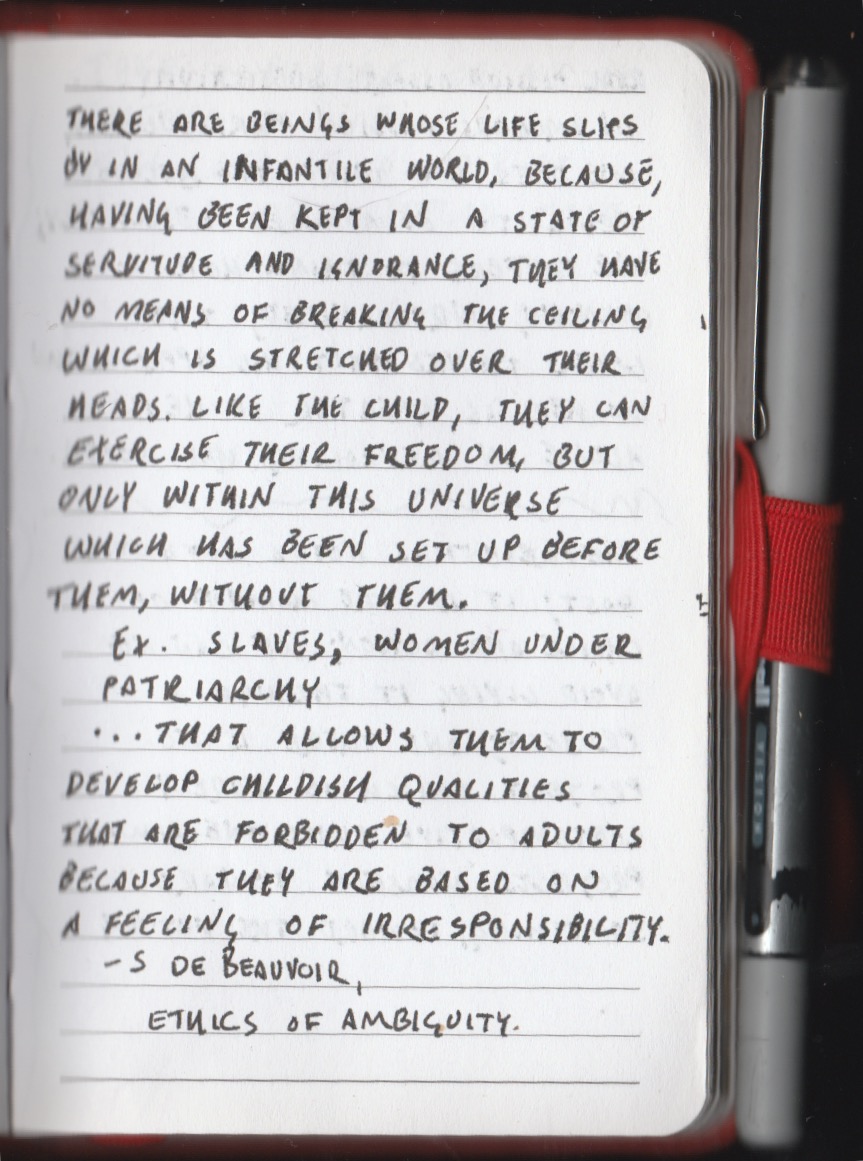 THERE ARE BEINGS WHOSE LIFE SLIPS
BY IN AN INFANTILE WORLD, BECAUSE,
HAVING BEEN KEPT IN A STATE OF
SERVITUDE AND IGNORANCE, THEY HAVE
NO MEANS OF BREAKING THE CEILING
WHICH IS STRETCHED OVER THEIR
HEADS. LIKE THE CHILD, THEY CAN
EXERCISE THEIR FREEDOM, BUT
ONLY WITHIN THIS UNIVERSE
WHICH HAS BEEN SET UP BEFORE
THEM, WITHOUT THEM.
EX. SLAVES, WOMEN UNDER
PATRIARCHY
...THAT ALLOWS THEM TO
DEVELOP CHILDISH QUALITIES
THAT ARE FORBIDDEN TO ADULTS
BECAUSE THEY ARE BASED ON
A FEELING OF IRRESPONSIBILITY.
- S DE BEAUVOIR,
ETHICS OF AMBIGUITY.
VISION